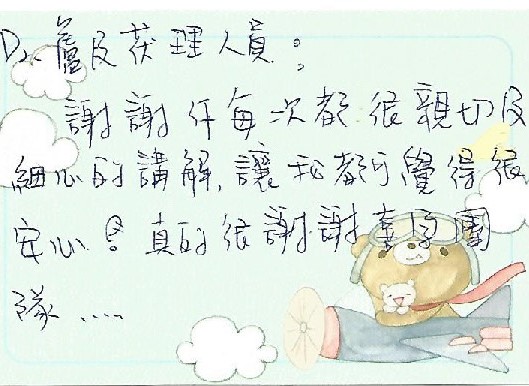 Dr. 蘆及護理人員:
謝謝你每次都很親切及
細心的講解,讓我都覺得很
安心!真的很謝謝 團
隊....